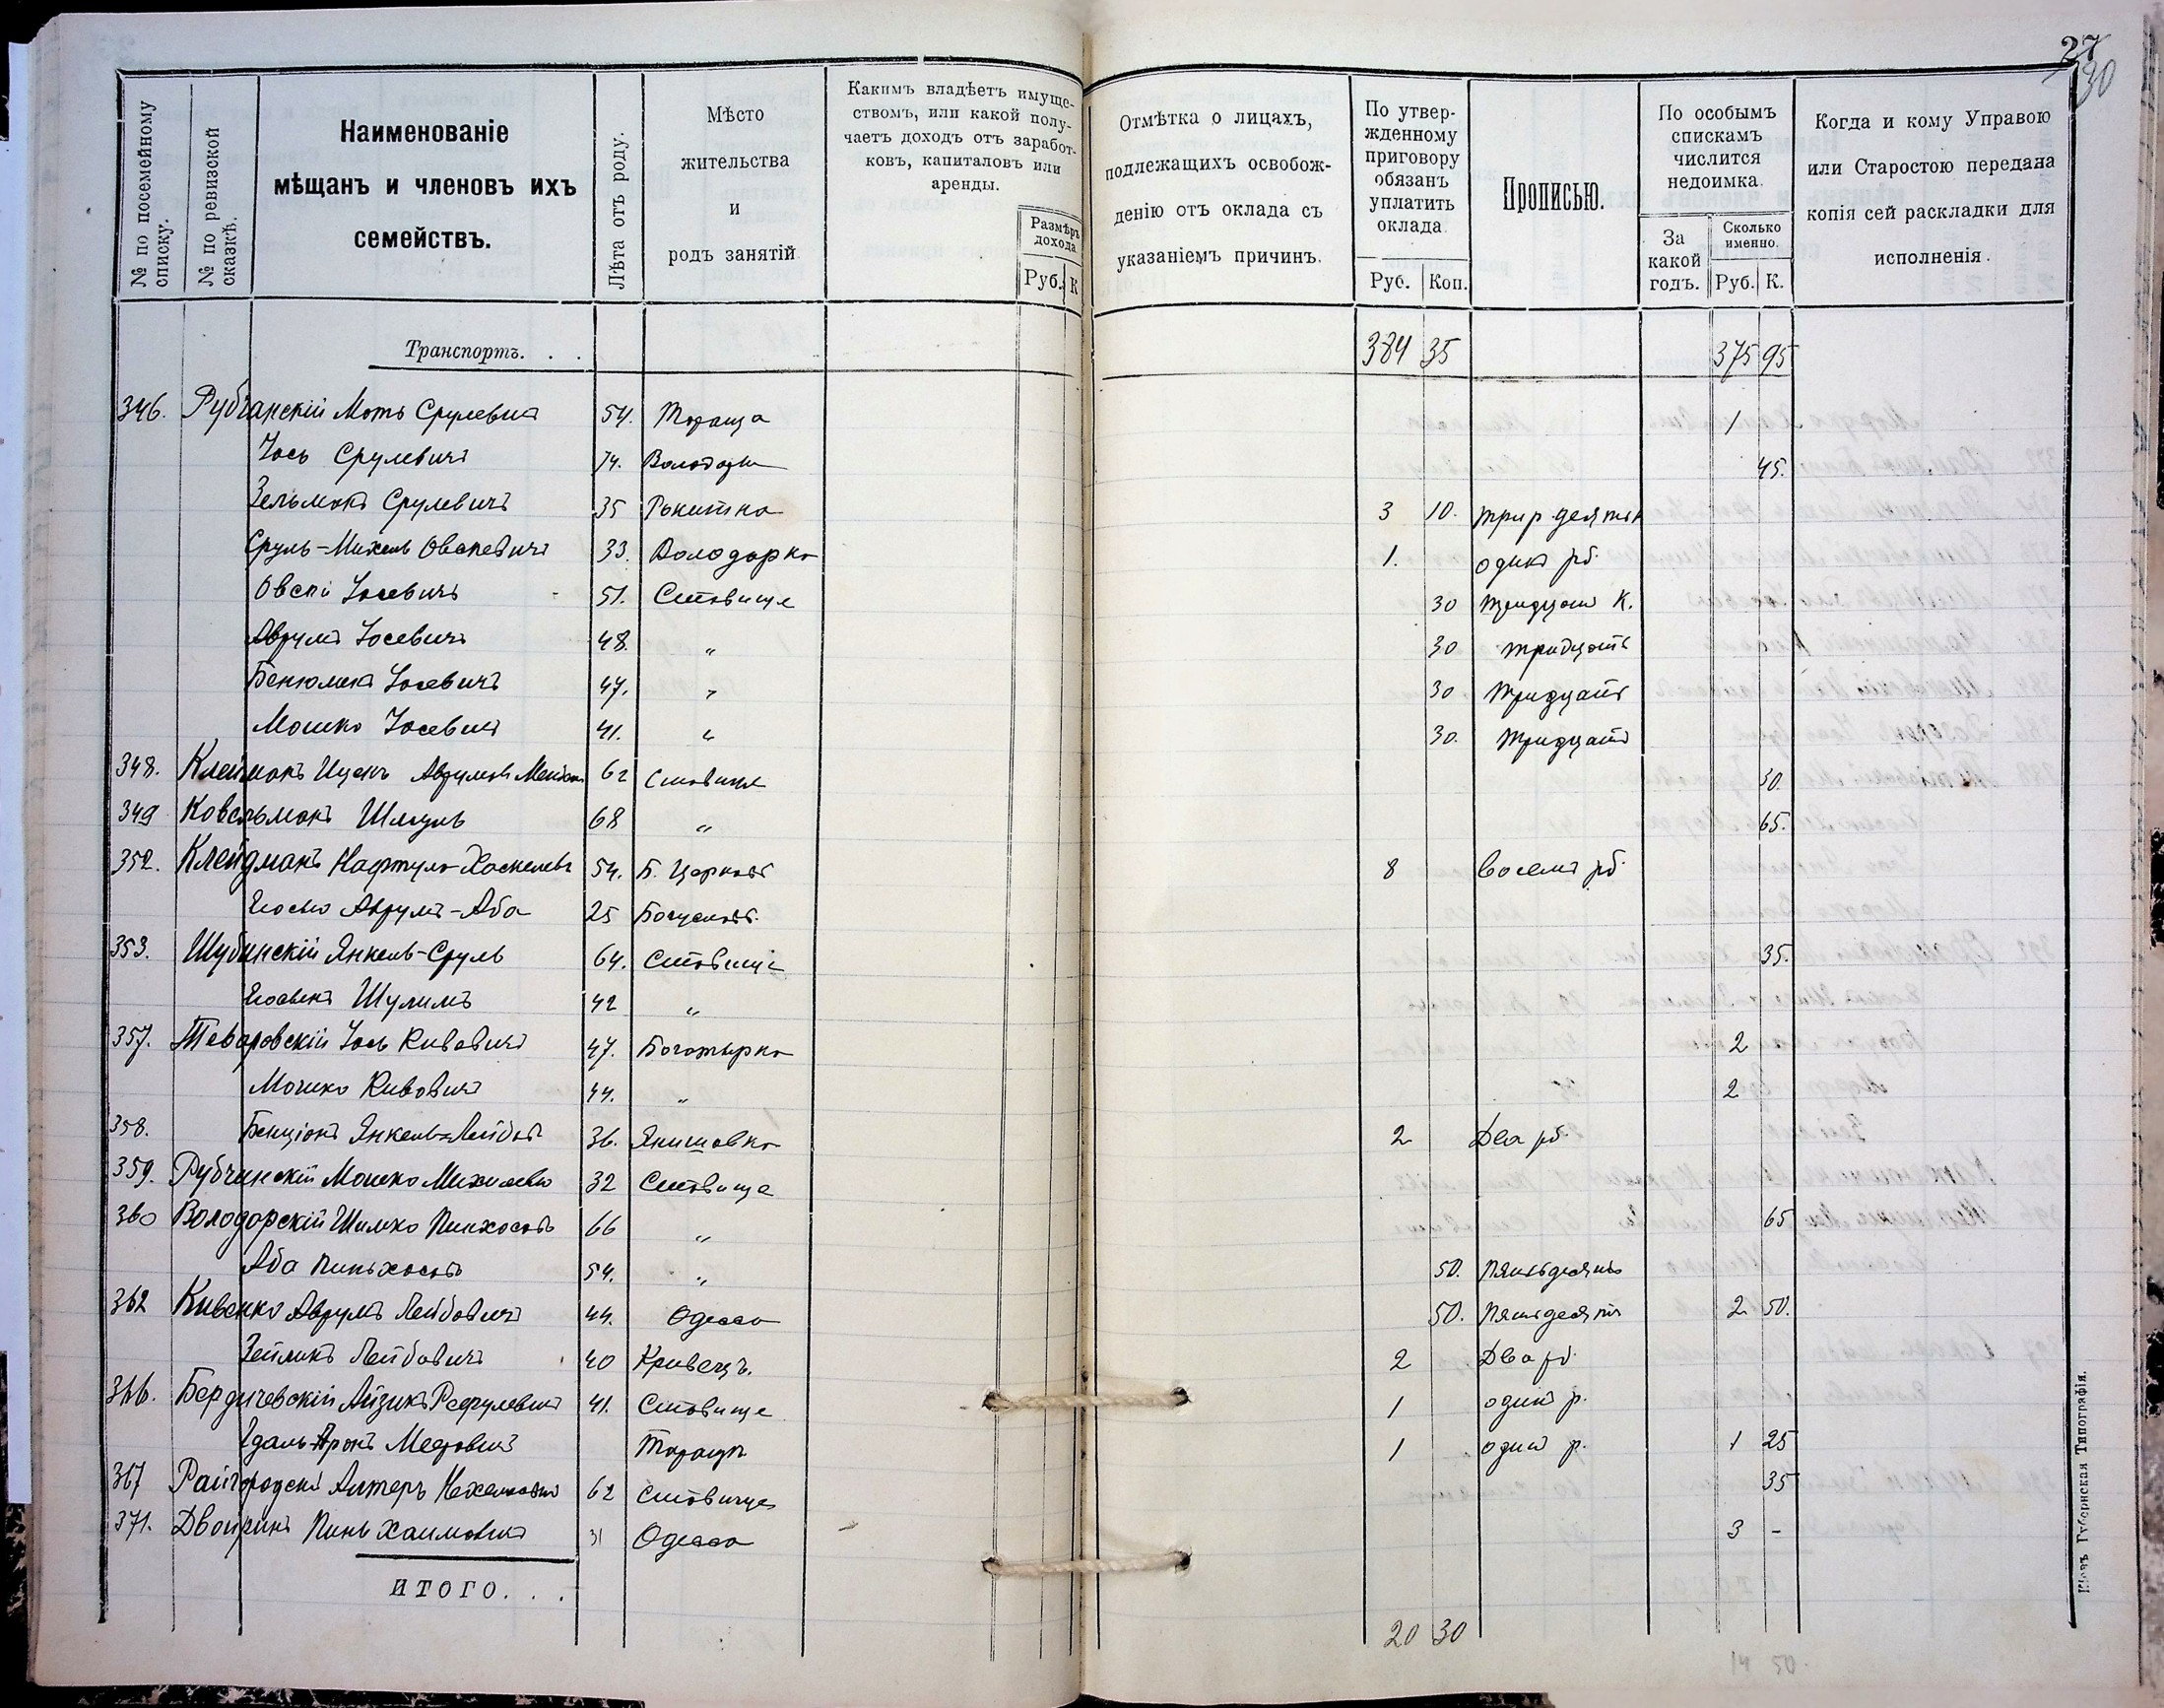 27
30
№ по посемейному списку.
№ по ревизской сказкѣ.
Наименованіе
мѣщанъ и членовъ ихъ
семействъ.
Лѣта отъ роду.
Мѣсто
жительства
и
родъ занятій
Какимъ владѣетъ имуще-
ствомъ, или какой полу-
чаетъ доходъ отъ заработ-
ковъ, капиталовъ или
аренды.
Размѣръ
дохода
Руб. К
Отмѣтка о лицахъ,
подлежащихъ освобож-
денію отъ оклада съ
указаніемъ причинъ.
По утвер-
жденному
приговору
обязанъ
уплатить
оклада
Руб. Коп.
Прописью.
По особымъ
спискамъ
числится
недоимка.
За
какой
годъ.
Сколько
именно.
Руб. К.
Когда и кому Управою
или Старостою передана
копія сей раскладки для
исполненія.
Транспортъ. . . 384 35 375 95
346. Рубчанскій Моть Срулевичъ 54. Тараща 1
Іось Срулевичъ 74. 45.
Зельманъ Срулевичъ 35 Рокитна 3 10.
Сруль-Михель Овсеевичъ 33. Володарка 1. одинъ рб.
Овсей Іосевичъ 51. Ставище 30 тридцать К.
Аврумъ Іосевичъ 48. " 30 тридцать
Іосевичъ 47. " 30 тридцать
Мошко Іосевичъ 41. " 30. тридцать
348. Клейманъ Ицекъ 62 Ставище 30.
349 Ковальманъ Шмуль 68 " 65.
352. Клейдманъ Нафтула Хаскелевъ 54. Б. Церковь 8 восемь рб.
Аврумъ-Аба 25 Богуславъ.
353. Шубинскій Янкель-Сруль 64. Ставище 35.
Шулимъ 42 "
357. Теваровскій Іось Кивовичъ 47. Богатырка 2
Мошко Кивовичъ 44. " 2
358. Бенціонъ Янкель-Лейбовъ 36. Янишовка 2 Два рб.
359. Рубчинскій Мошко 32 Ставище
360 Володарскій Шимко Пинхосовъ 66 " 65
Аба Пиньхосовъ 54. " 50. Пятьдесятъ
362 Кивенко Аврумъ Лейбовичъ 44. Одесса 50. Пятьдесятъ 2 50.
Зейликъ Лейбовичъ 40 Кривецъ. 2 Два рб.
366. Бердичевскій Айзикъ 41. Ставище 1 одинъ р.
Тараща 1 одинъ р. 1 25
367 Райгородскій Алтеръ 62 Ставище 35
371. Пинь Хаимовичъ 31 Одесса 3 -
ИТОГО. . . 20 30
14 50.
Кіевъ Губернская Типографія.